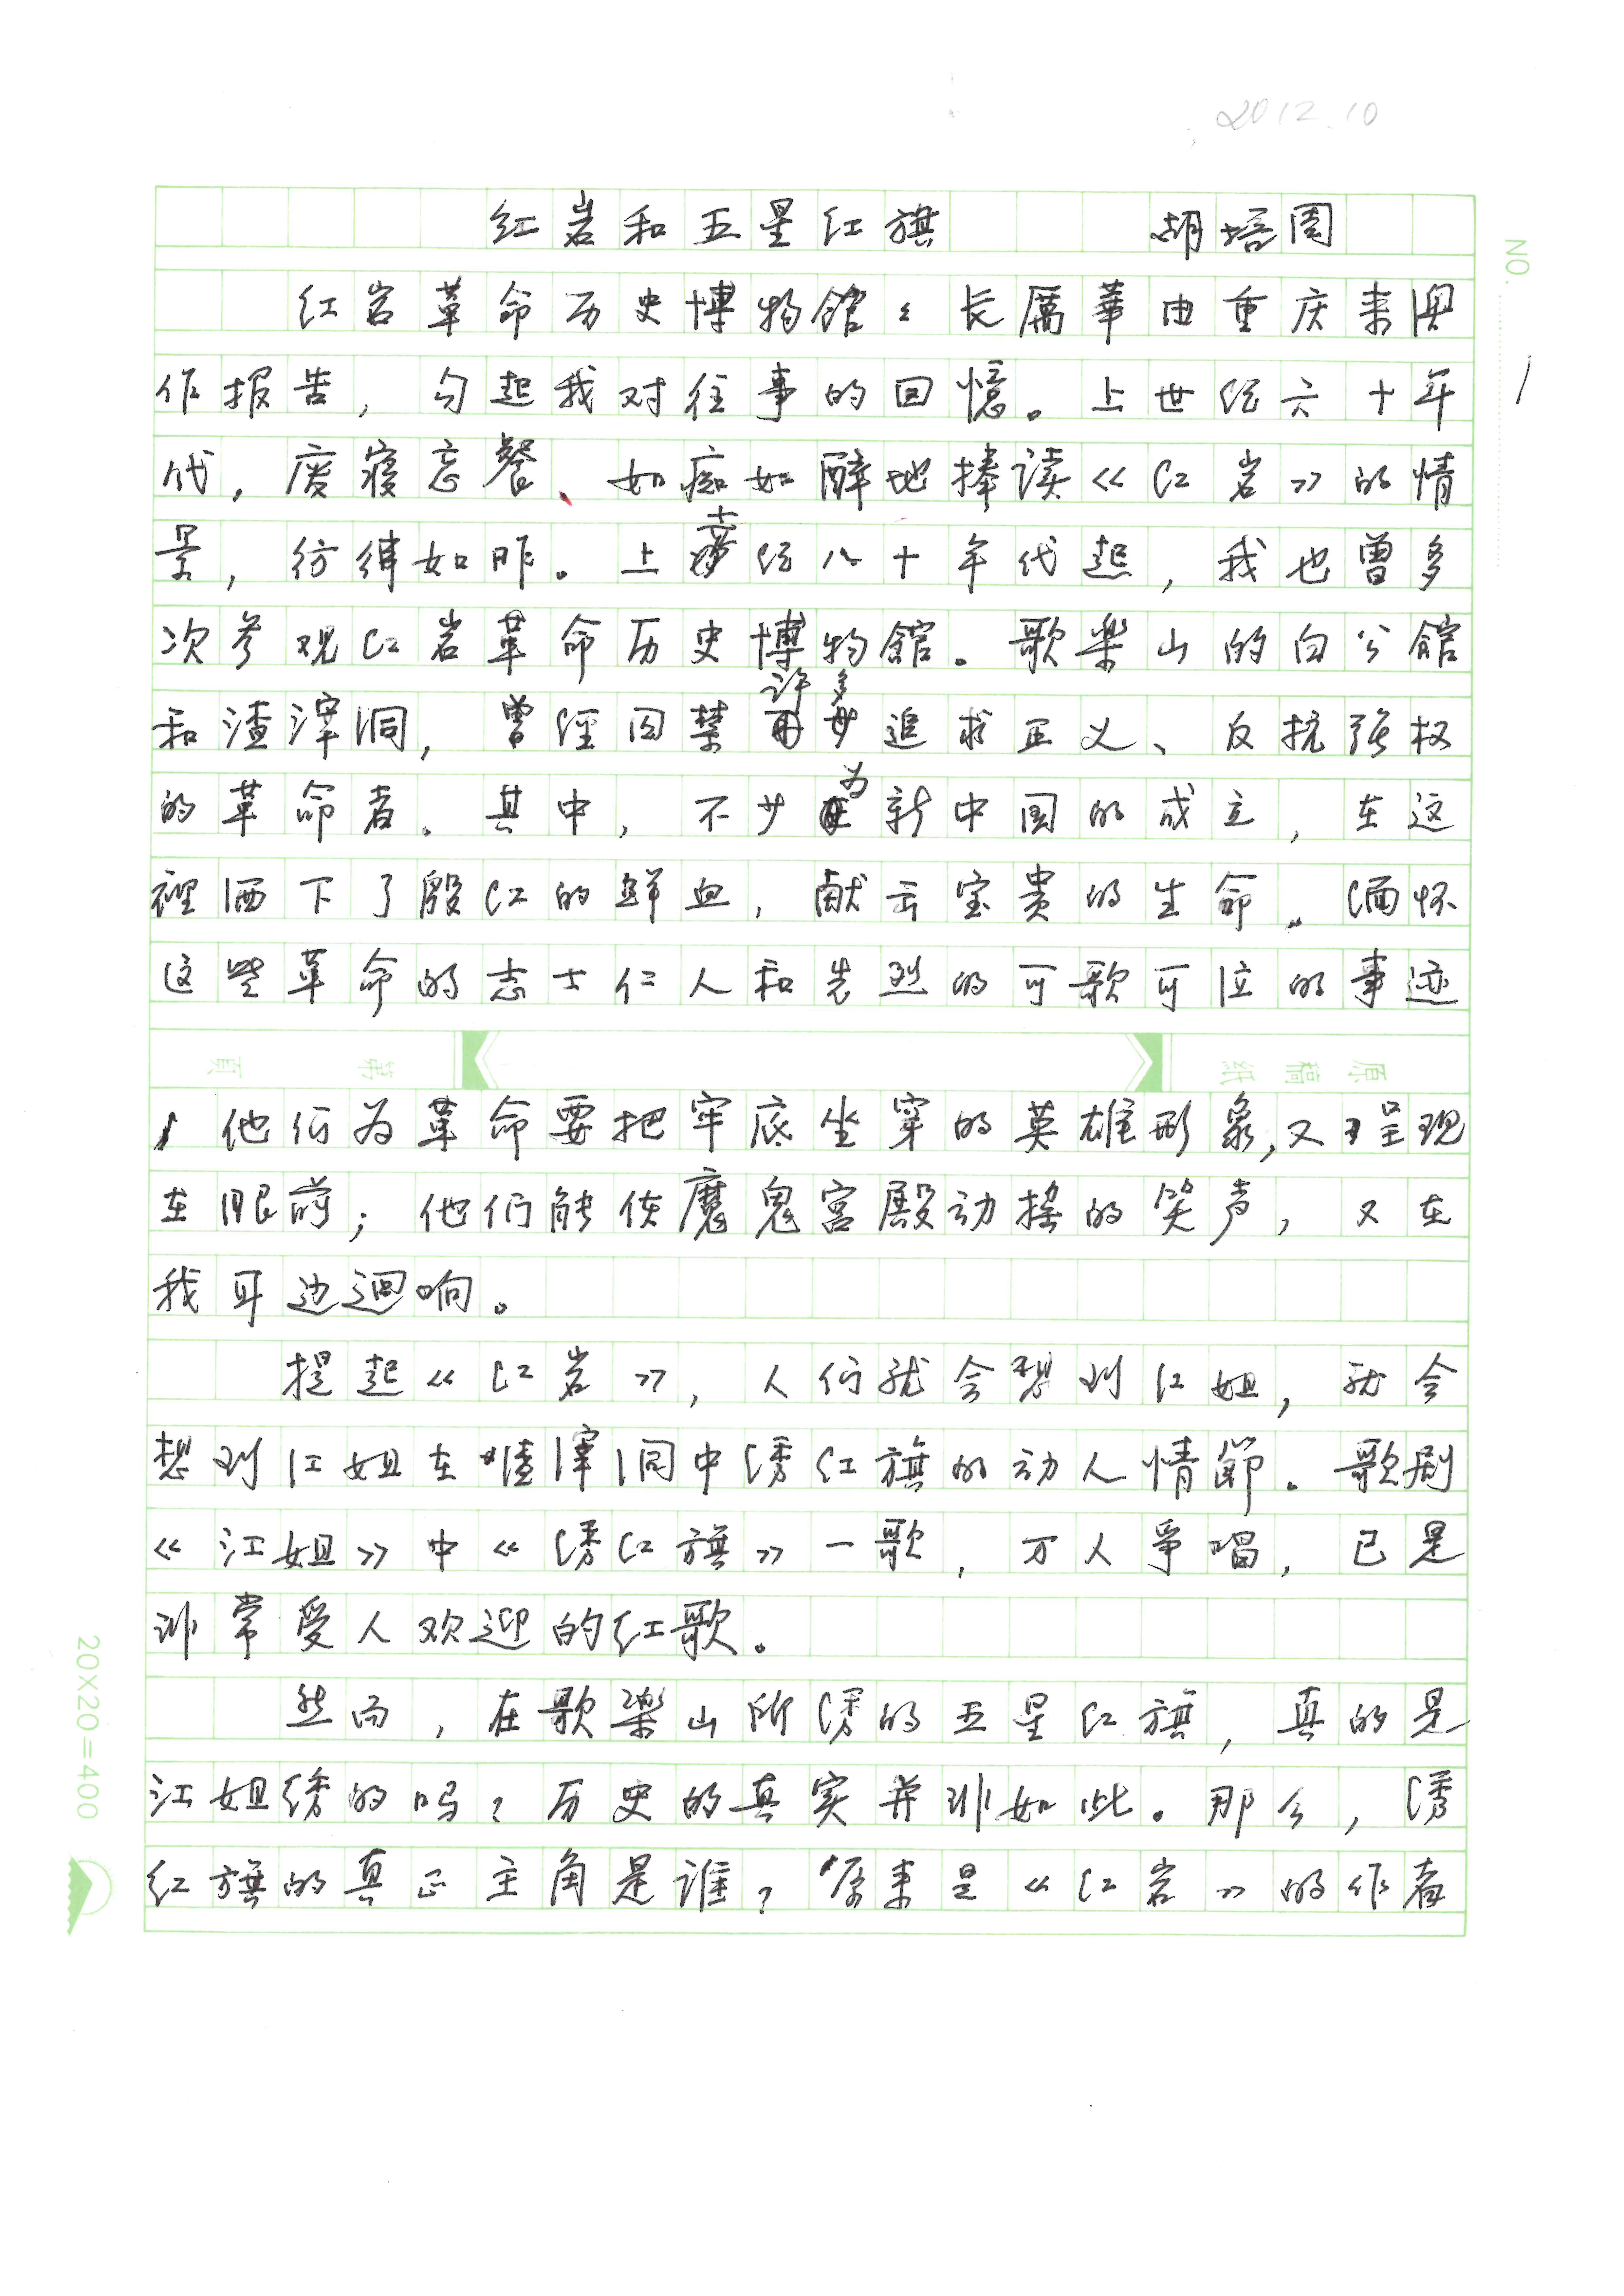 2012.10
红岩和五星红旗 胡培周
NO.
1
红岩革命历史博物館々长厲華由重庆来澳
作报告，勾起我对往事的回憶。上世纪六十年
代，废寝忘餐、如痴如醉地捧读《红岩》的情
景，彷彿如昨。上世纪八十年代起，我也曾多
次参观红岩革命历史博物館。歌樂山的白公館
和渣滓洞，曾經囚禁许多追求正义、反抗强权
的革命者。其中，不少为新中国的成立，在这
裡洒下了殷红的鲜血，献出宝贵的生命。缅怀
这些革命的志士仁人和先烈的可歌可泣的事迹
原稿紙 第 頁
，他们为革命要把牢底坐穿的英雄形象，又呈现
在眼前；他们能使魔鬼宫殿动摇的笑声，又在
我耳边迴响。
提起《红岩》，人们就会想到江姐，就会
想到江姐在渣滓洞中绣红旗的动人情節。歌剧
《江姐》中《绣红旗》一歌，万人爭唱，已是
非常受人欢迎的红歌。
然而，在歌樂山所绣的五星红旗，真的是
江姐绣的吗？历史的真实并非如此。那么，绣
红旗的真正主角是谁？原来是《红岩》的作者
20X20=400